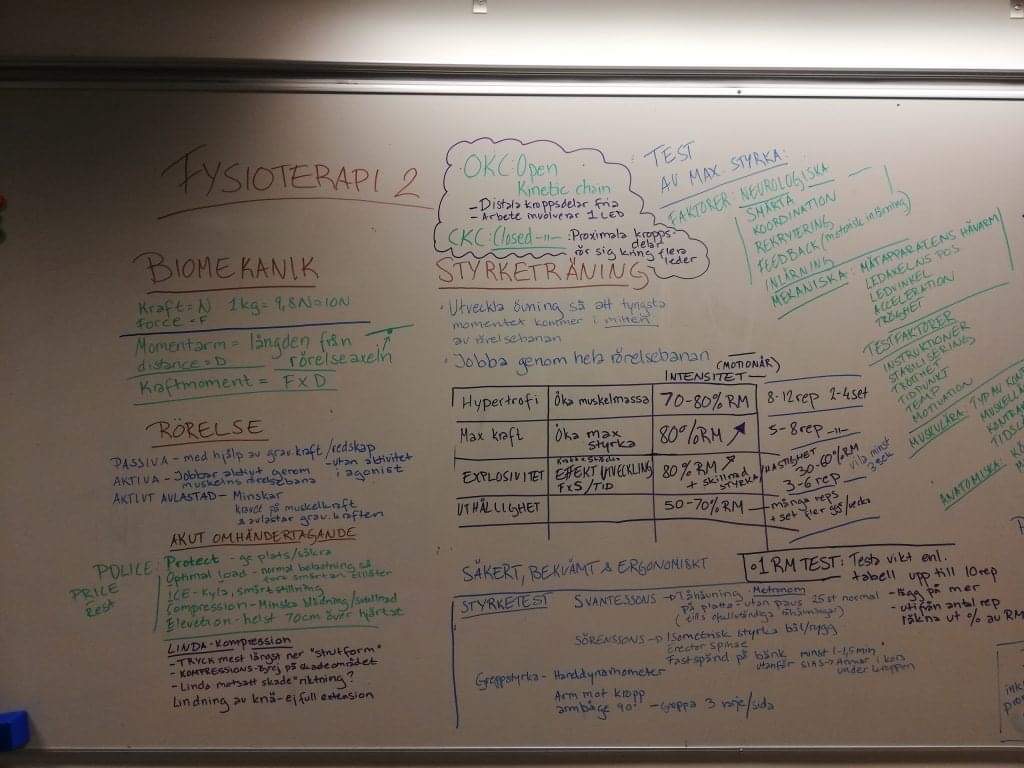 FYSIOTERAPI 2
BIOMEKANIK
Kraft = N 1kg = 9,8N ≈ 10N
force = F
Momentarm = längden från
distance = D rörelseaxeln
Kraftmoment = F x D
RÖRELSE
PASSIVA - med hjälp av grav.kraft/redskap
- utan aktivitet
i agonist
AKTIVA - Jobbar aktivt genom
muskelns rörelsebana
AKTIVT AVLASTAD - Minskar
kravet på muskelkraft
& avlastar grav.kraften
AKUT OMHÄNDERTAGANDE
POLICE: Protect - ge plats/säkra
Optimal load - normal belastning så
fort smärtan tillåter
PRICE
Rest
ICE - Kyla, smärtstillning
Compression - Minska blödning/svullnad
Elevation - helst 70cm över hjärtat
LINDA - Kompression
- TRYCK mest längst ner "strutform"
- KOMPRESSIONS på skadeområdet
- Linda motsatt skade"riktning?
Lindning av knä - ej full extension
OKC: Open
Kinetic chain
- Distala kroppsdelar fria
- Arbete involverar 1 LED
CKC: Closed -"- : Proximala kropps-
delar
rör sig kring flera
leder
STYRKETRÄNING
· Utveckla övning så att tyngsta
momentet kommer i mitten
av rörelsebanan
· Jobba genom hela rörelsebanan
(MOTIONÄR)
INTENSITET
Hypertrofi Öka muskelmassa 70-80% RM 8-12 rep 2-4 set
Max kraft Öka max styrka 80% RM 5-8 rep -"-
EXPLOSIVITET EFFEKT UTVECKLING F x S / TID 80% RM + skillnad STYRKA/HASTIGHET 30-60% RM 3-6 rep vila minst 3 sek
UTHÅLLIGHET 50-70% RM - många reps + set fler ggr/vecka
SÄKERT, BEKVÄMT & ERGONOMISKT
· 1 RM TEST: Testa vikt enl.
tabell upp till 10 rep
- lägg på mer
- utifrån antal rep
räkna ut % av RM
STYRKETEST
SVANTESSONS → Tåhävning, Metronom
på platta - utan paus 25 st normal
SÖRENSSONS → Isometrisk styrka bål/rygg
Erector spinae
Fastspänd på bänk minst 1-1,5 min
utanför SIAS → Armar i kors
under kroppen
Greppstyrka - Handdynamometer
Arm mot kropp
armbåge 90° - Greppa 3 varje/sida
TEST
AV MAX. STYRKA:
FAKTORER: NEUROLOGISKA
SMÄRTA
KOORDINATION
REKRYTERING
FEEDBACK (motorisk inlärning)
INLÄRNING
MEKANISKA: MÄTAPPARATENS HÄVARM
LEDAXELNS POS
LEDVINKEL
ACCELERATION
TRÖGHET
TESTFAKTORER
INSTRUKTIONER
STABILISERING
TRÖTTHET
TIDPUNKT
TEMPO
MOTIVATION
MUSKULÄRA: TYP AV KON
MUSKELL
KONT
TIDSL
ANATOMISKA: